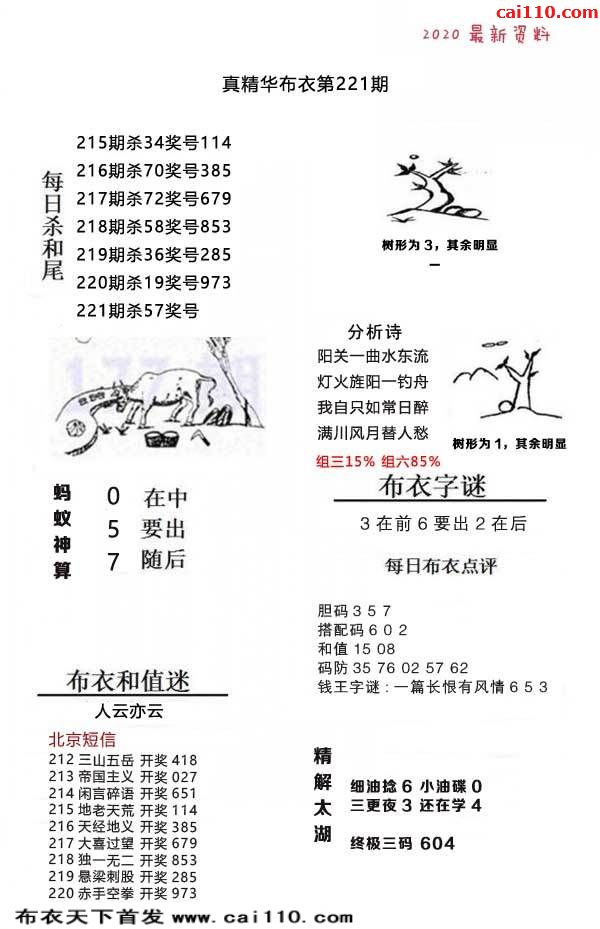 cai110.com
2020 最新资料
真精华布衣第221期
每日杀和尾
215期杀34奖号114
216期杀70奖号385
217期杀72奖号679
218期杀58奖号853
219期杀36奖号285
220期杀19奖号973
221期杀57奖号
树形为3，其余明显
分析诗
阳关一曲水东流
灯火旌阳一钓舟
我自只如常日醉
满川风月替人愁
组三15% 组六85%
树形为1，其余明显
蚂蚁神算
0 在中
5 要出
7 随后
布衣字谜
3在前6要出2在后
每日布衣点评
胆码 3 5 7
搭配码 6 0 2
和值 15 08
码防 35 76 02 57 62
钱王字谜：一篇长恨有风情 6 5 3
布衣和值迷
人云亦云
北京短信
212 三山五岳 开奖 418
213 帝国主义 开奖 027
214 闲言碎语 开奖 651
215 地老天荒 开奖 114
216 天经地义 开奖 385
217 大喜过望 开奖 679
218 独一无二 开奖 853
219 悬梁刺股 开奖 285
220 赤手空拳 开奖 973
精解太湖
细油捻 6 小油碟 0
三更夜 3 还在学 4
终极三码 604
布衣天下首发 www.cai110.com